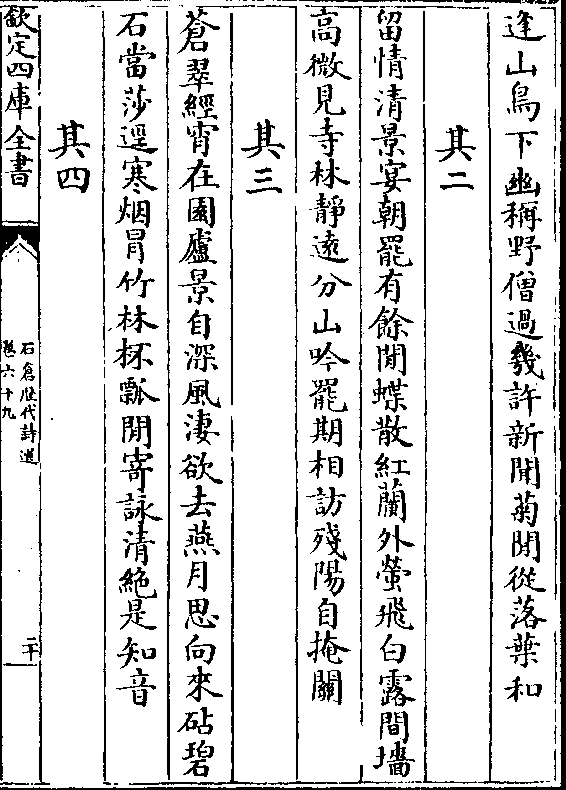 逢山鳥下幽稱野僧過幾許新開菊閒從落葉和
其二
留情清景宴朝罷有餘閒蝶散紅蘭外螢飛白露間墻
高微見寺林靜遠分山吟罷期相訪殘陽自掩關
其三
蒼翠經宵在園廬景自深風淒欲去燕月思向來砧碧
石當莎逕寒烟冐竹林杯瓢閒寄詠清絶是知音
其四
欽定四庫全書
石倉歴代詩選
卷六十九
二十